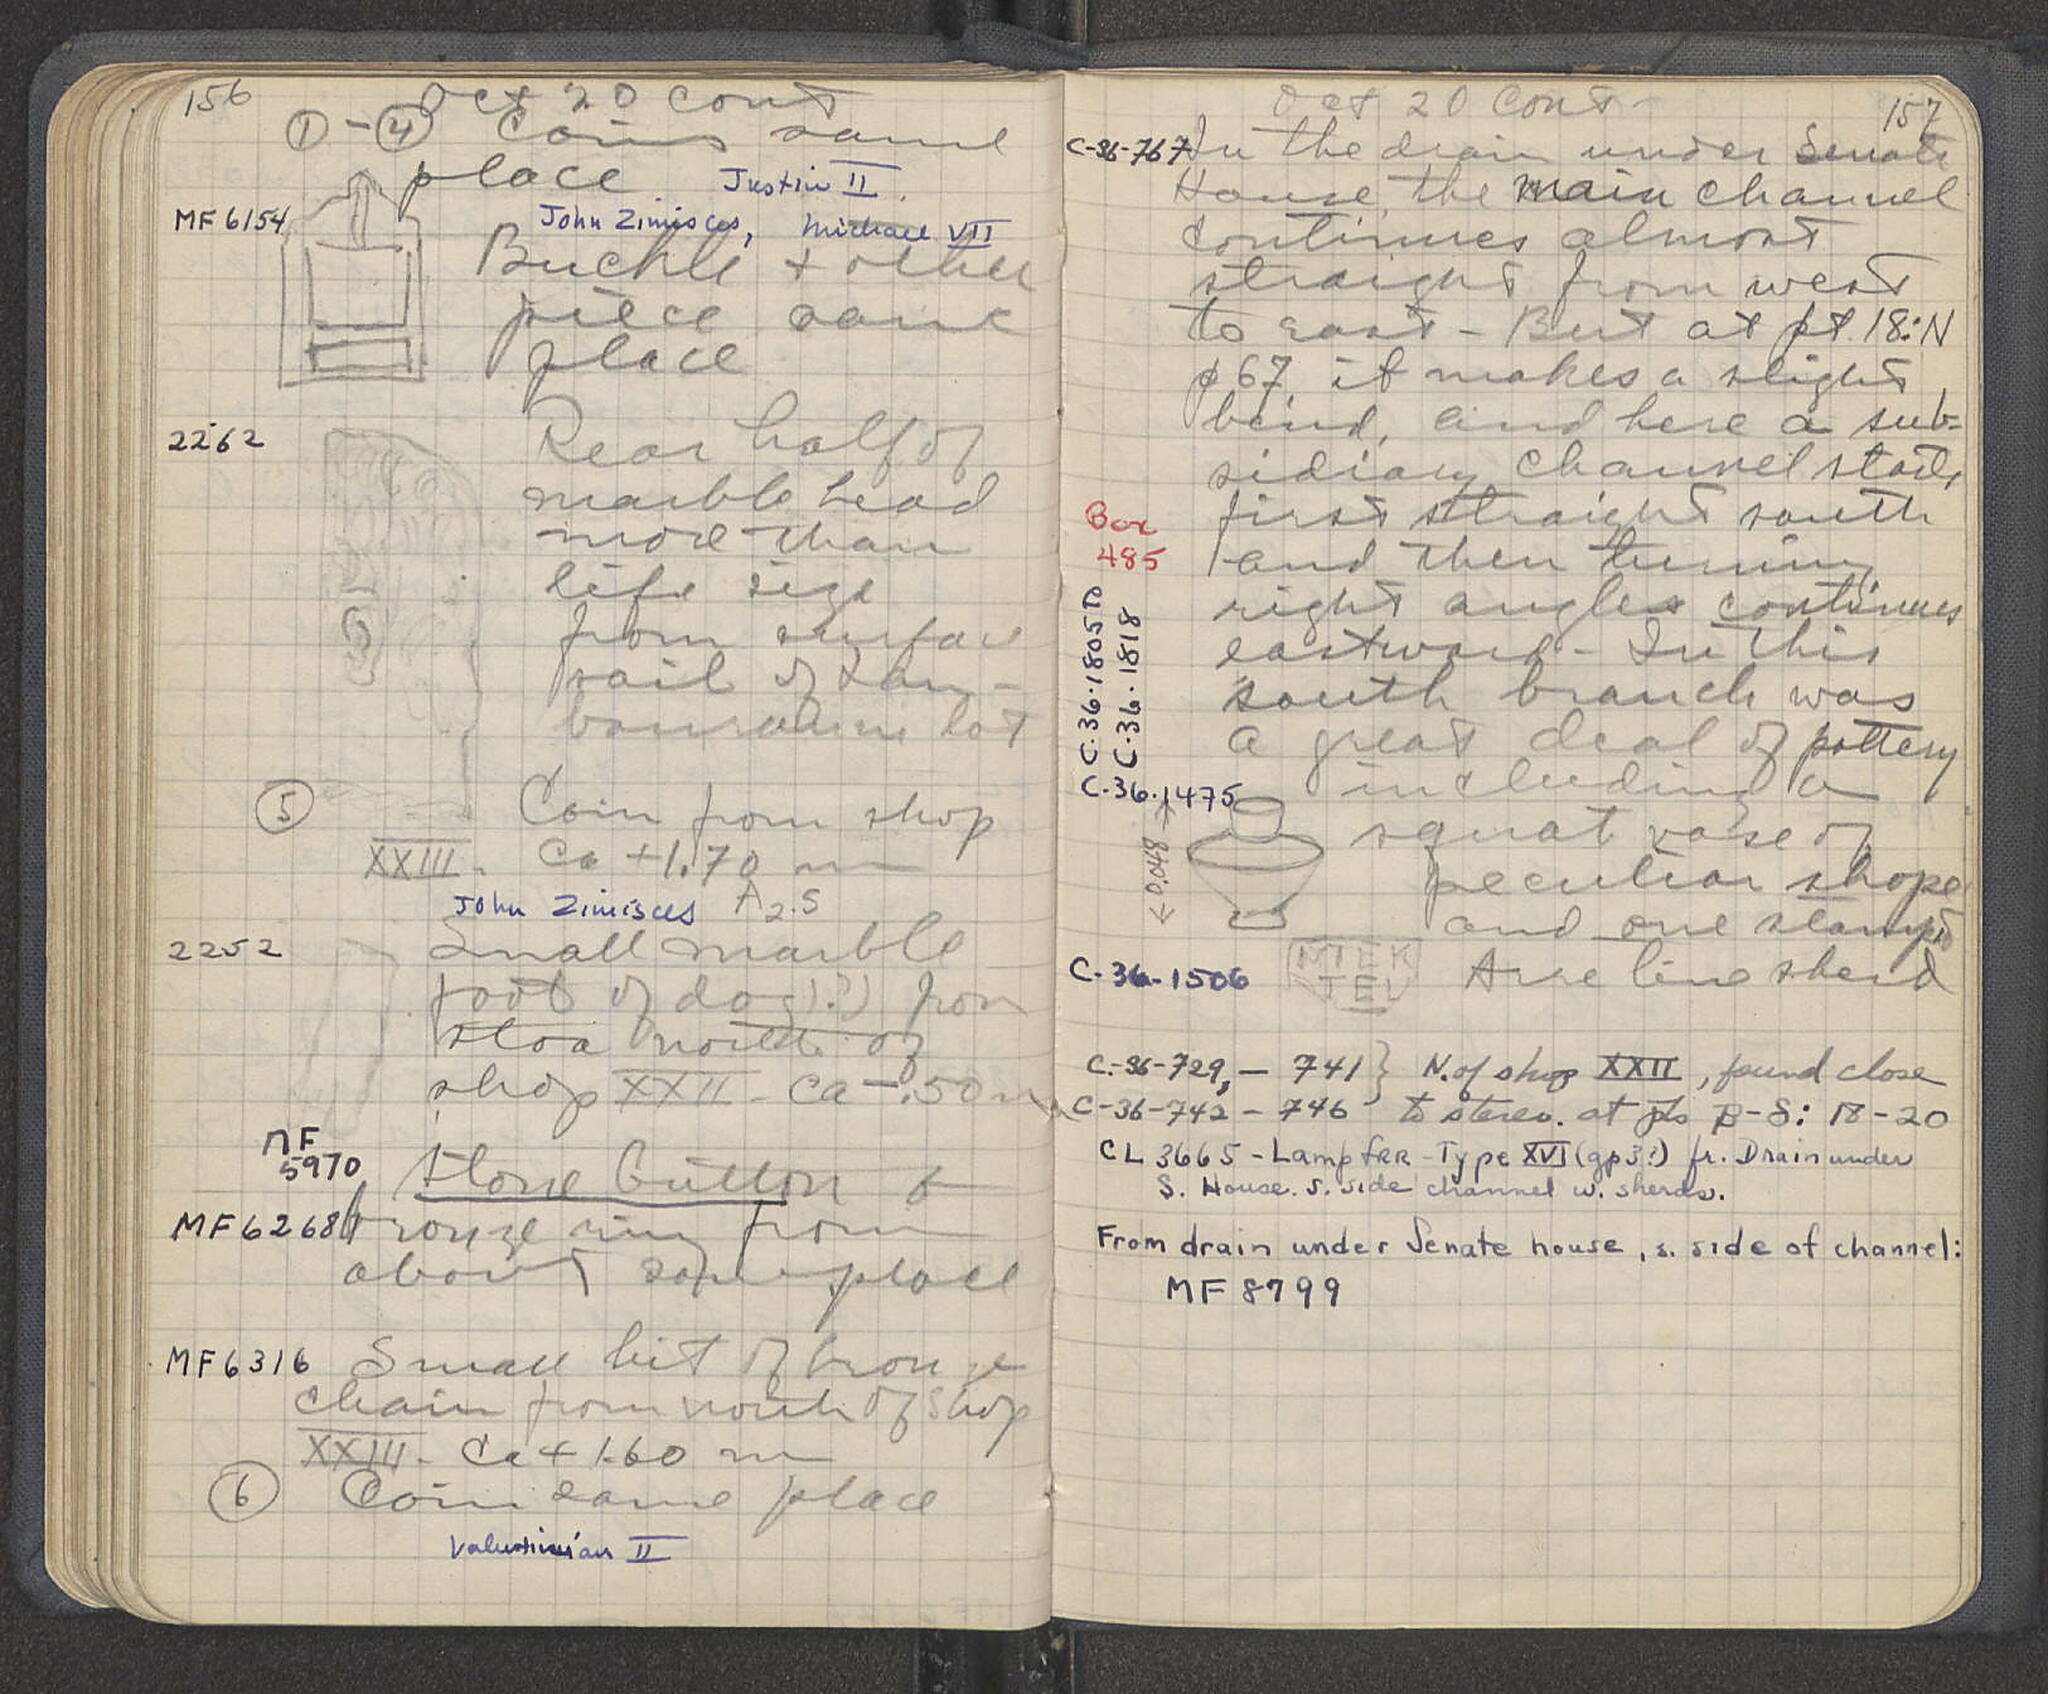 156
Oct 20 cont
① - ④ Coins same
place Justin II.
John Zimisces, Michael VII
MF 6154
Buckle + other
piece same
place
2262
Rear half of
marble head
more than
life size
from surface
soil of
lot
⑤ Coin from shop
XXIII. Ca +1.70 m
John Zimisces A2.5
2252
Small marble
foot of dog(?) from
stoa north of
shop XXII - Ca -.50 m
MF
5970
Stone button &
MF 6268
bronze ring from
about same place
MF 6316 Small bit of bronze
chain from north of shop
XXIII - Ca + 1.60 m
⑥ Coin same place
Valentinian II
Oct 20 cont -
157
C-36-767 In the drain under Senate
House, the main channel
continues almost
straight from west
to east - But at pt. 18:N
p 67, it makes a slight
bend, and here a sub-
sidiary channel starts
first straight south
Box
485
and then turning
right angles continues
eastward - In this
south branch was
a great deal of pottery
including a
C.36.1805 to
C.36.1818
C.36.1475
squat vase of
peculiar shape
0.048
and one stamped
C-36-1506
Arretine sherd
C-36-729, - 741 } N. of shop XXII, found close
C-36-742 - 746 to stereo. at pts B-S: 18-20
CL 3665 - Lamp frr - Type XVI (gp 3?) fr. Drain under
S. House. S. side channel w. sherds.
From drain under Senate house, s. side of channel:
MF 8799